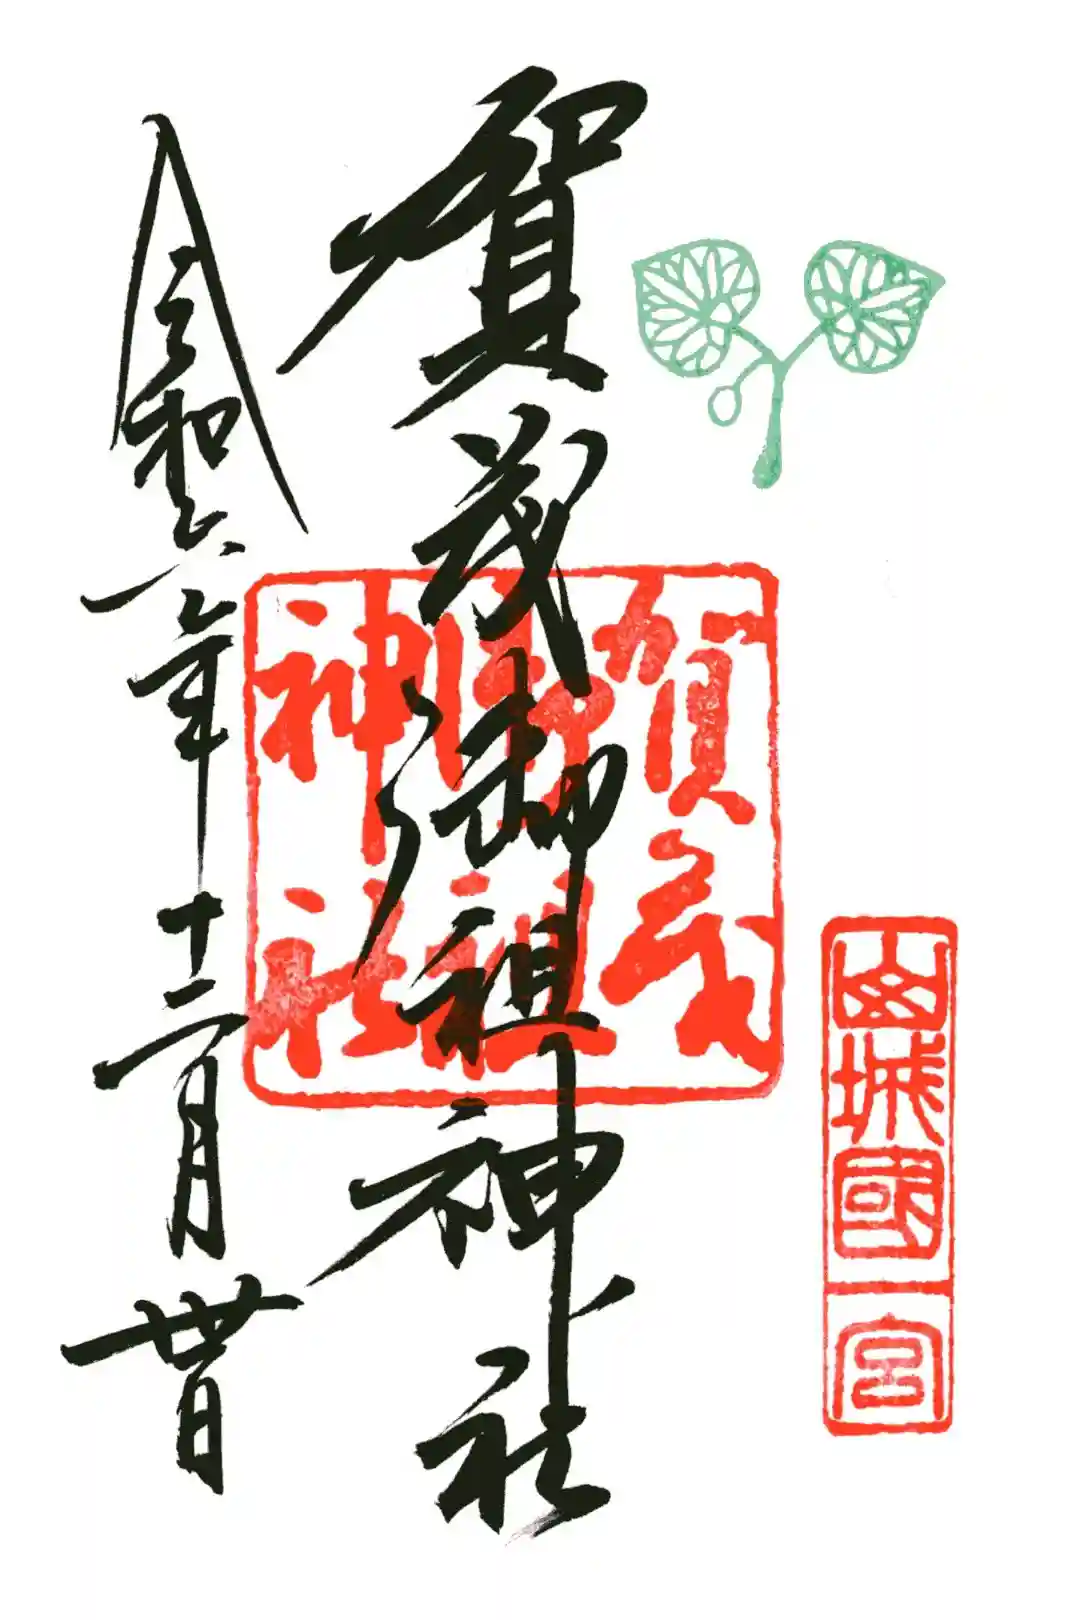 山城國一宮
賀茂御祖神社
賀茂
御祖
神社
令和六年十二月卅日